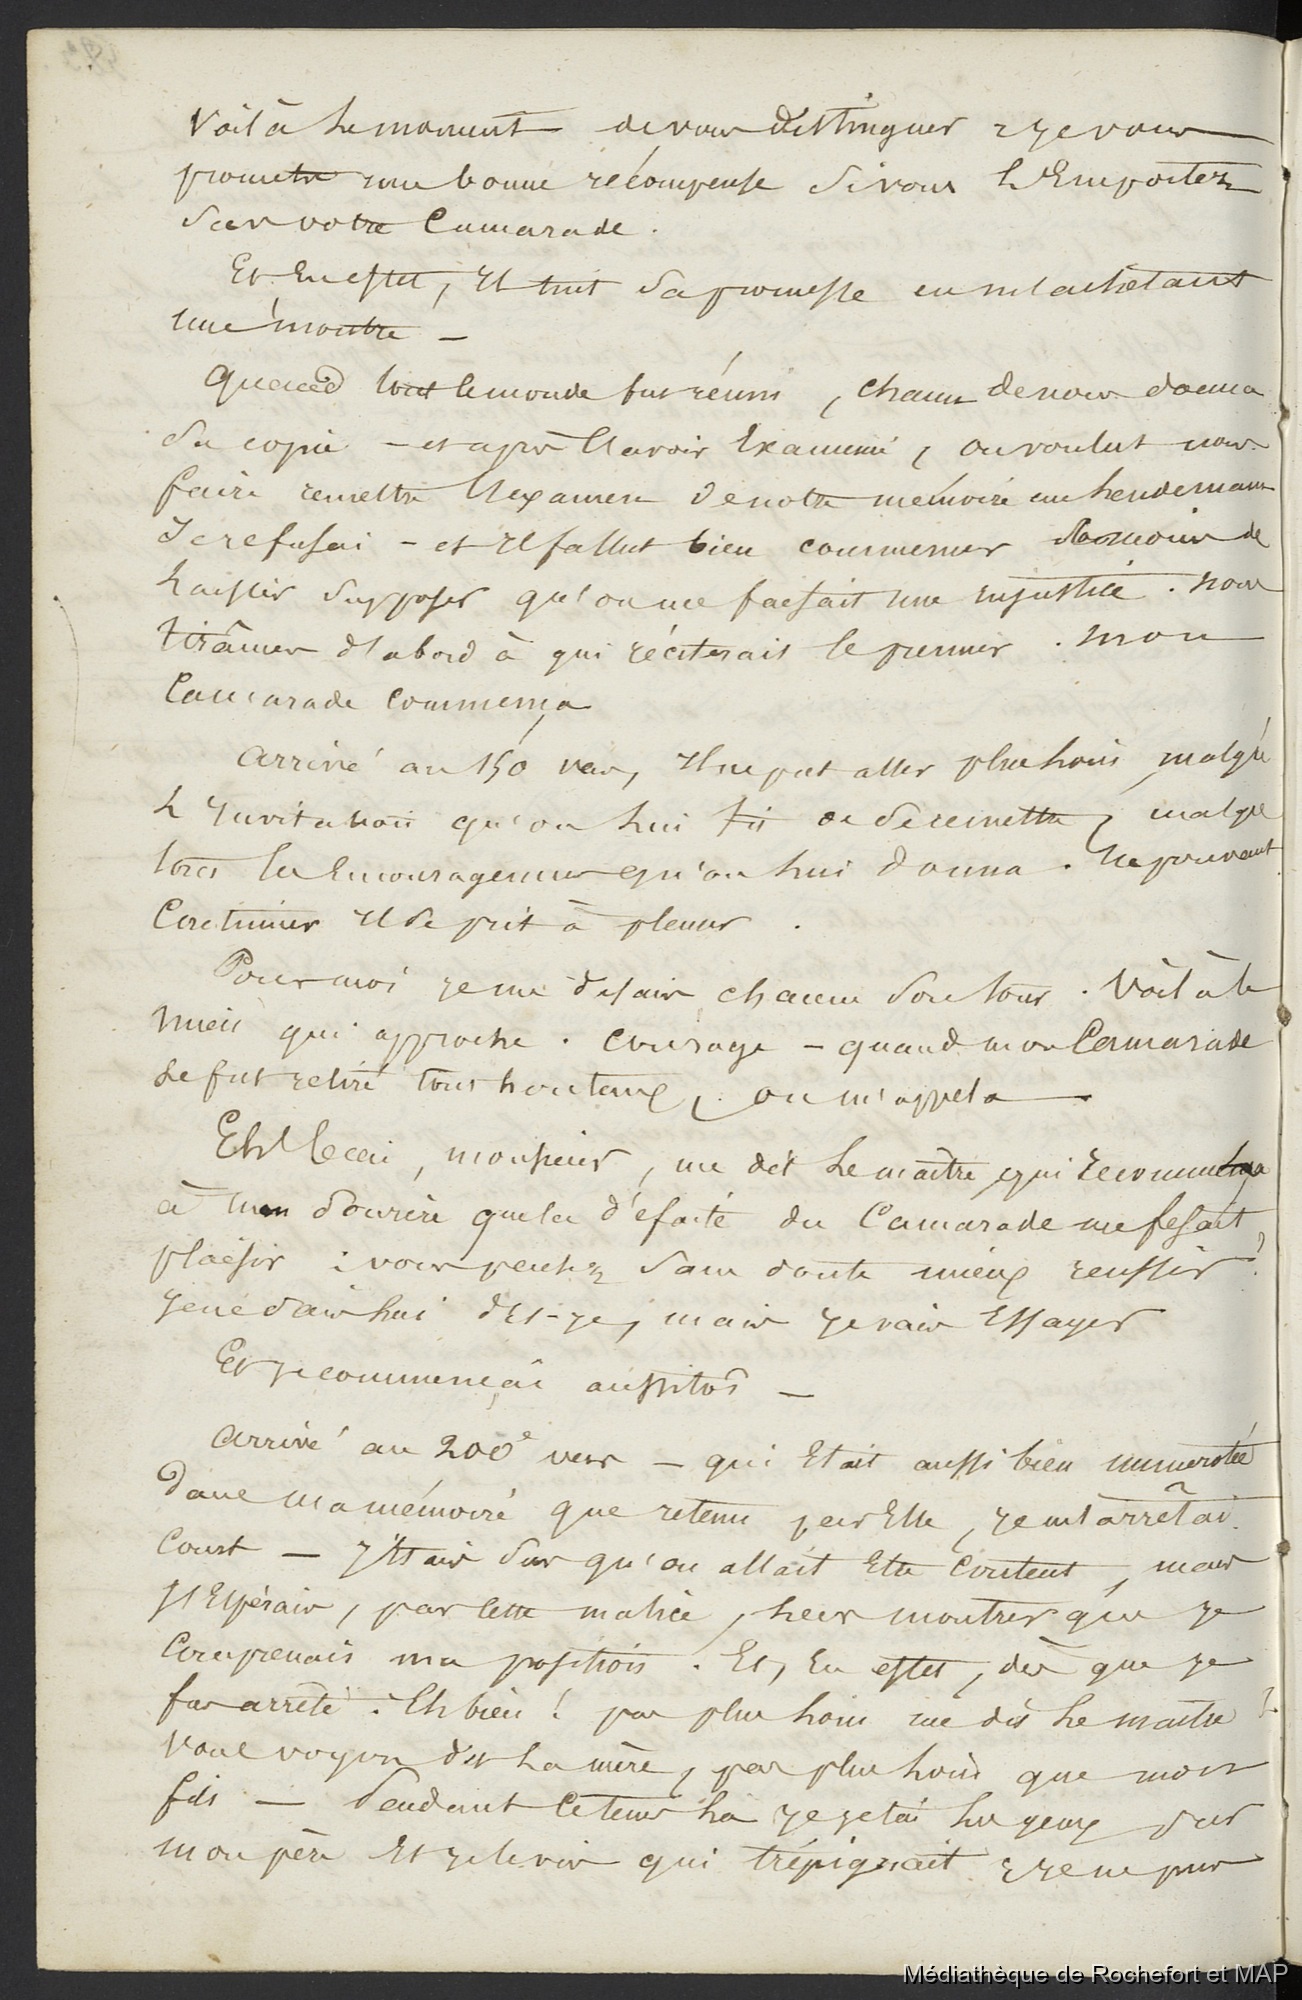 Voilà le moment de vous distinguer, je vous
promets une bonne récompense si vous l'emportez
sur votre Camarade.
Et en effet, il tint sa promesse en m'achetant
une montre —
Quand tout le monde fut réuni, chacun de nous donna
sa copie — et après l'avoir Examiné, on voulut nous
faire remettre l'examen de notre mémoire au lendemain
Je refusai — et il fallut bien commencer à moins de
laisser supposer qu'on me faisait une injustice. nous
tirâmes d'abord à qui réciterait le premier. mon
Camarade commença
arrivé au 150 vers, il ne put aller plus loin, malgré
l'invitation qu'on lui fit de se remettre, malgré
tous les encouragemens qu'on lui donna. Ne pouvant
Continuer il se prit à pleurer.
Pour moi je me disais, chacun son tour. Voilà le
mien qui approche. Courage — quand mon Camarade
se fut retiré tout honteux, on m'appela —
Eh bien, monsieur, me dit le maître, qui recommença
à mon sourire que la défaite du Camarade me fesait
plaisir : vous pensez sans doute mieux reussir?
je ne sais lui dis-je, mais je vais Essayer
Et je commençai aussitôt —
arrivé au 200e vers — qui était aussi bien numerotée
dans ma mémoire que retenu par Elle, je m'arrêtai
Court — j'étais sur qu'on allait être Content, mais
j'Espérais, par cette malice, leur montrer que je
Comprenais ma position. Et, En effet, dès que je
fus arrêté : Eh bien! pas plus loin me dit le maître?
vous voyez dit la mère, pas plus loin que mon
fils — Pendant ce tems là je jetai les yeux sur
mon père Et je le vis qui trépignait, je ne pus
Médiathèque de Rochefort et MAP